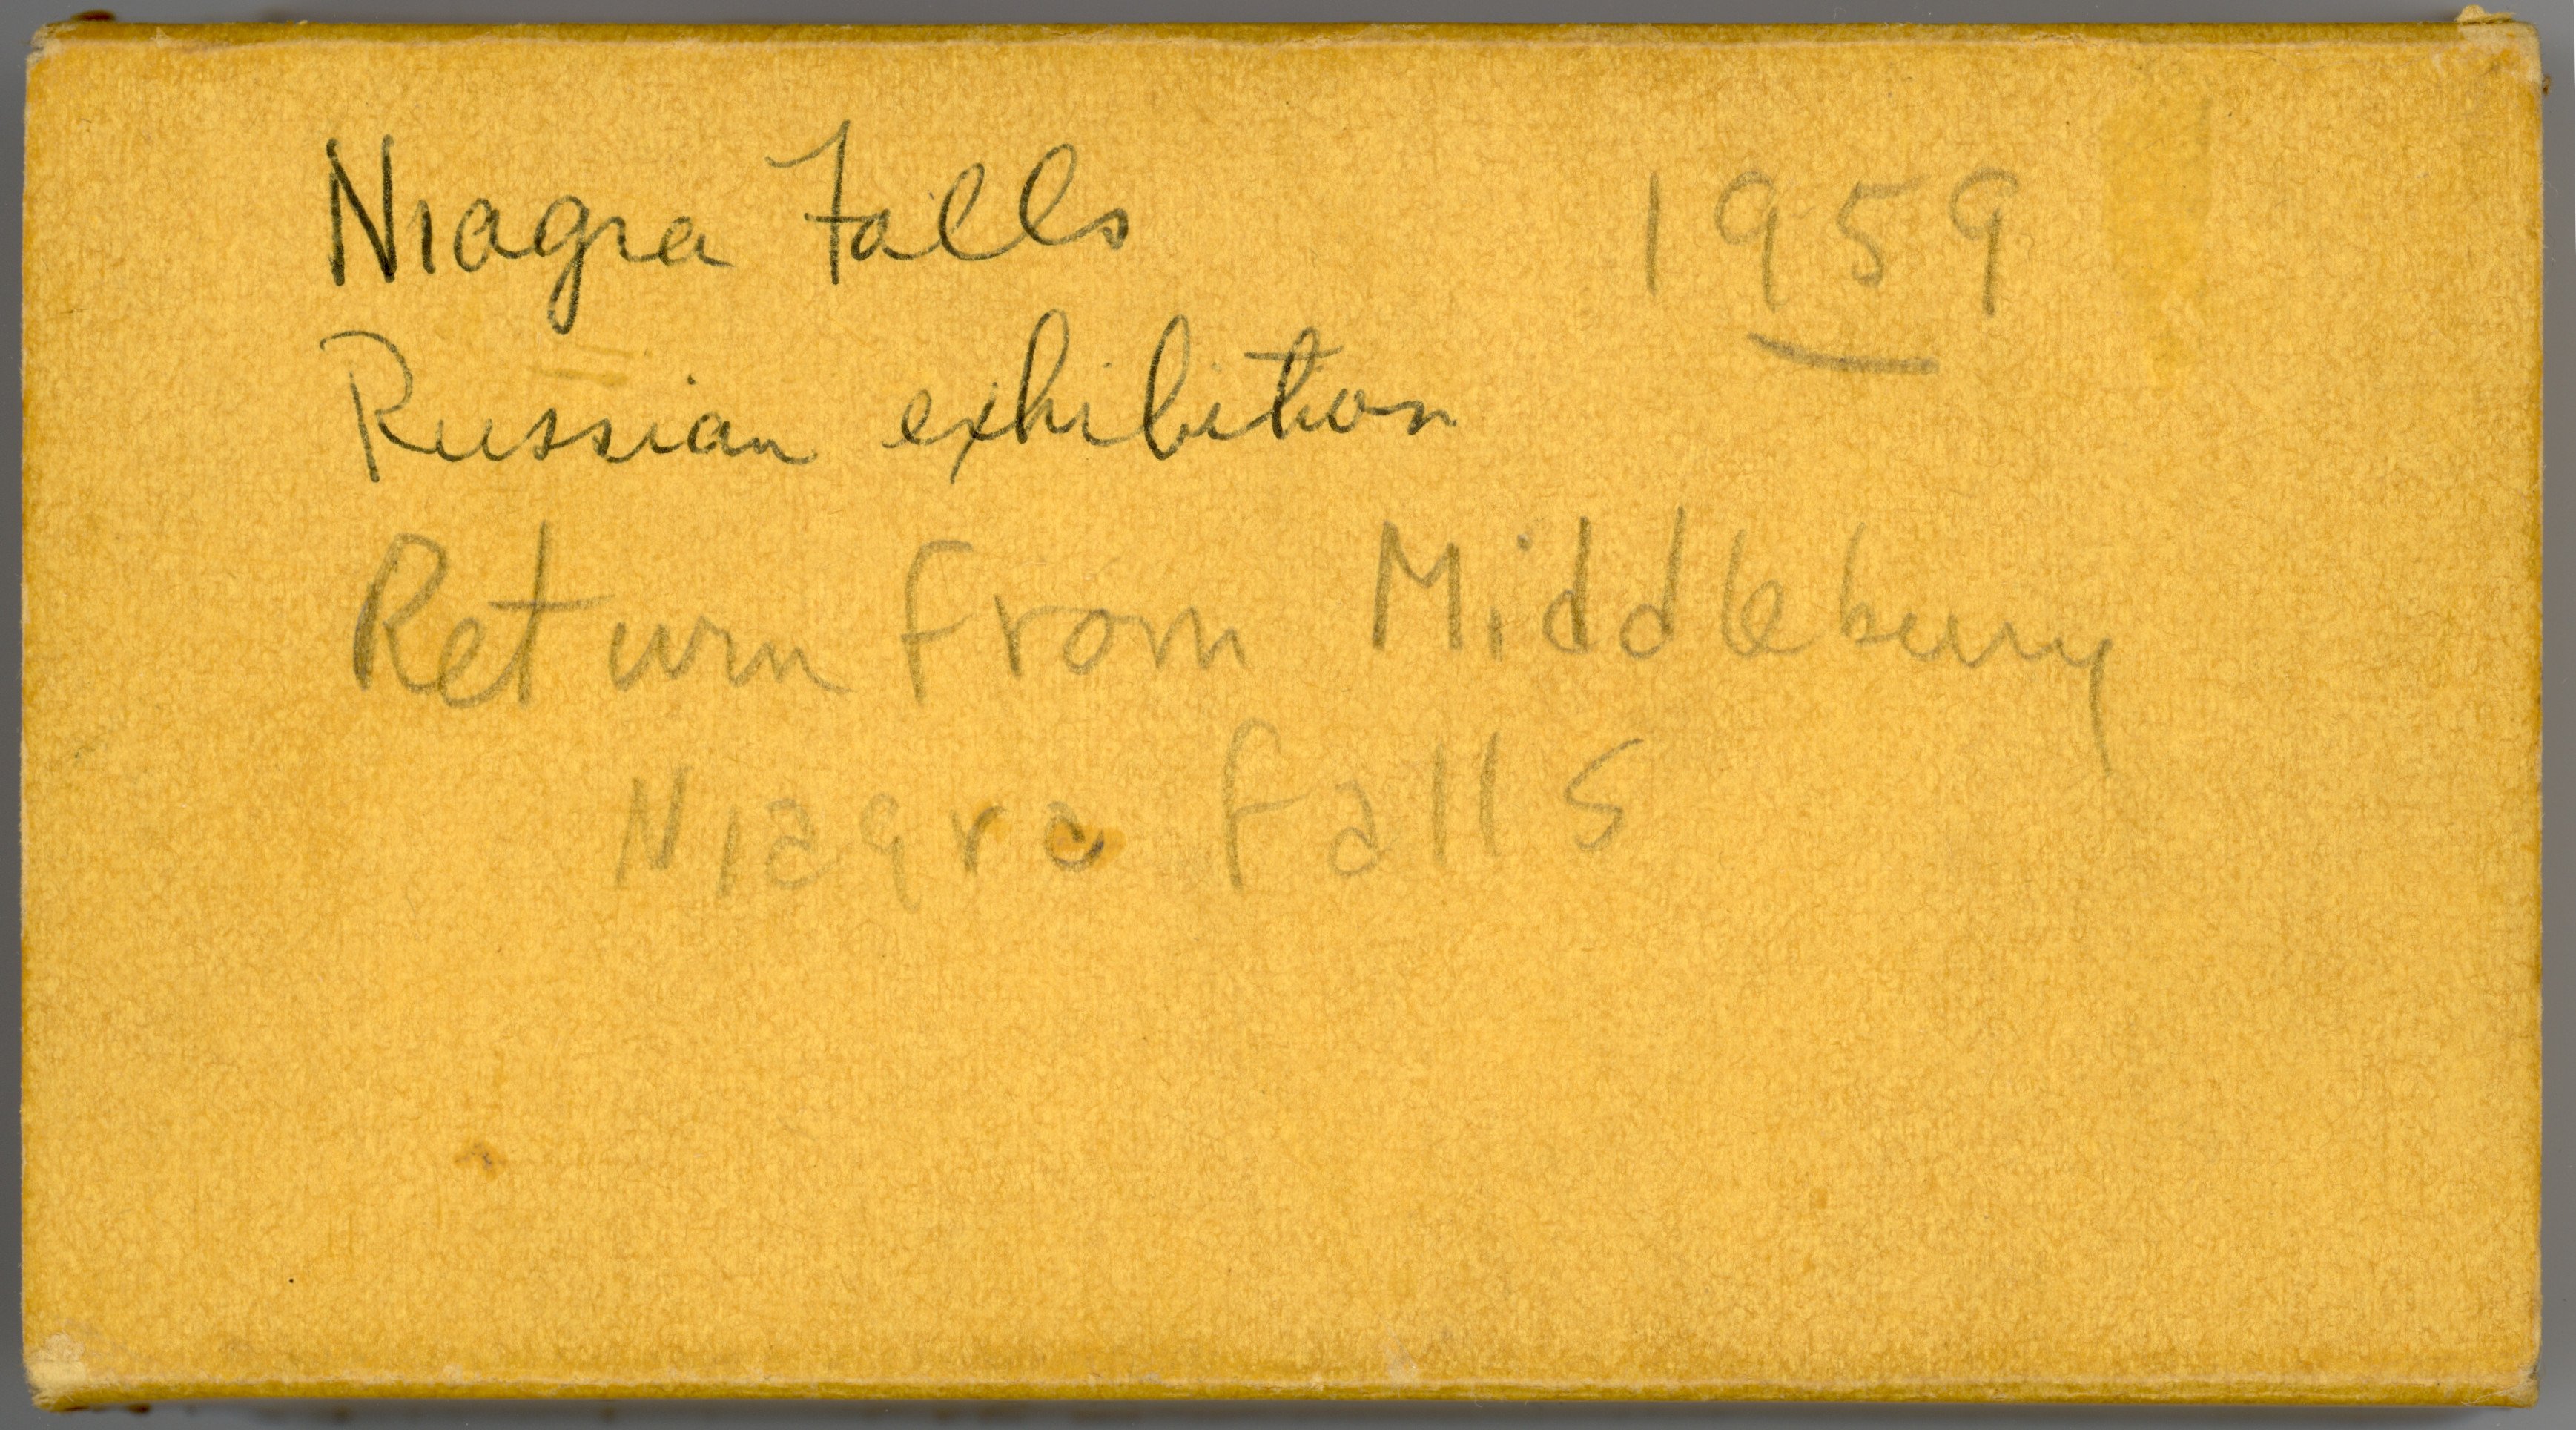 Niagra Falls 1959
Russian exhibition
Return From Middlebury
Niagra Falls